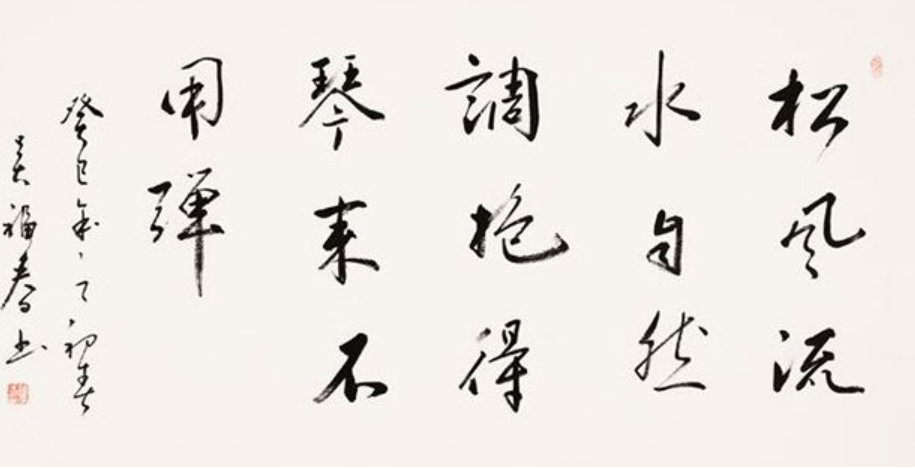 松风流
水自然
調抱得
琴来不
用彈
癸巳年之初春
吴福春书